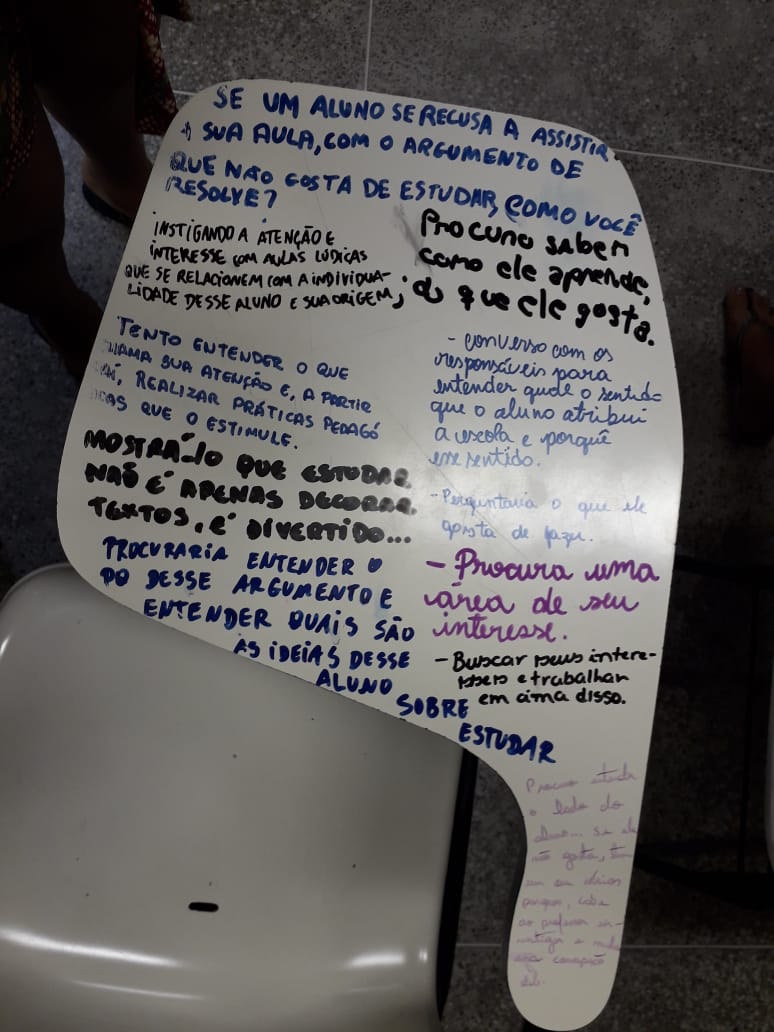 SE UM ALUNO SE RECUSA A ASSISTIR
À SUA AULA, COM O ARGUMENTO DE
QUE NÃO GOSTA DE ESTUDAR, COMO VOCÊ
RESOLVE?
INSTIGANDO A ATENÇÃO E
INTERESSE COM AULAS LÚDICAS
QUE SE RELACIONEM COM A INDIVIDUA-
LIDADE DESSE ALUNO E SUA ORIGEM;
Procuro saber
como ele aprende,
do que ele gosta.
TENTO ENTENDER O QUE
CHAMA SUA ATENÇÃO E, A PARTIR
DAÍ, REALIZAR PRÁTICAS PEDAGÓ
GICAS QUE O ESTIMULE.
MOSTRÁ-lO QUE ESTUDAR
NÃO É APENAS DECORAR
TEXTOS, É DIVERTIDO...
PROCURARIA ENTENDER O
DESSE ARGUMENTO E
ENTENDER QUAIS SÃO
AS IDEIAS DESSE
ALUNO
SOBRE
ESTUDAR
- converso com os
responsáveis para
entender qual o sentido
que o aluno atribui
a escola e porquê
esse sentido.
- Perguntaria o que ele
gosta de fazer.
- Procura uma
área de seu
interesse.
- Buscar seus intere-
sses e trabalhar
em cima disso.
Procuro
o lado do
aluno... se ele
não gosta,
porque, cabe
ao professor in-